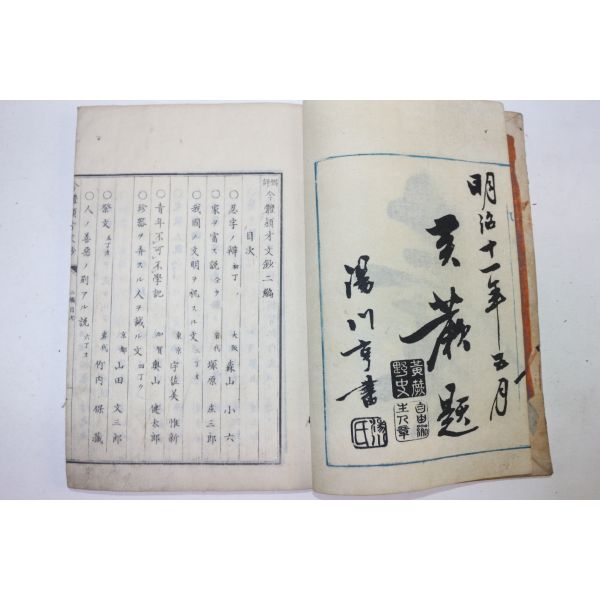 明治十一年五月
黄蕨題
黄蕨
野史
自由
湯川亨書
湯
氏
今體頴才文鈔二編
目次
○忍字ノ辯 初丁
大阪 森山小六
○家ヲ富ス説 仝ウ
塚原庄三郎
○我國ノ文明ヲ祝スル文 二丁
東京 宇佐美惟新
○青年不可不學記
加賀 奥山健太郎
○珍器ヲ弄スル人ヲ誡ル文 四丁ウ
京都 山田文三郎
○祭文 五丁オ
竹内保藏
○人ノ善惡ニ別アル説 六丁オ